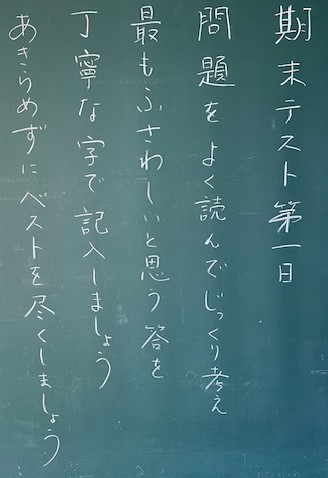 期末テスト第一日
問題をよく読んでじっくり考え
最もふさわしいと思う答を
丁寧な字で記入しましょう
あきらめずにベストを尽くしましょう